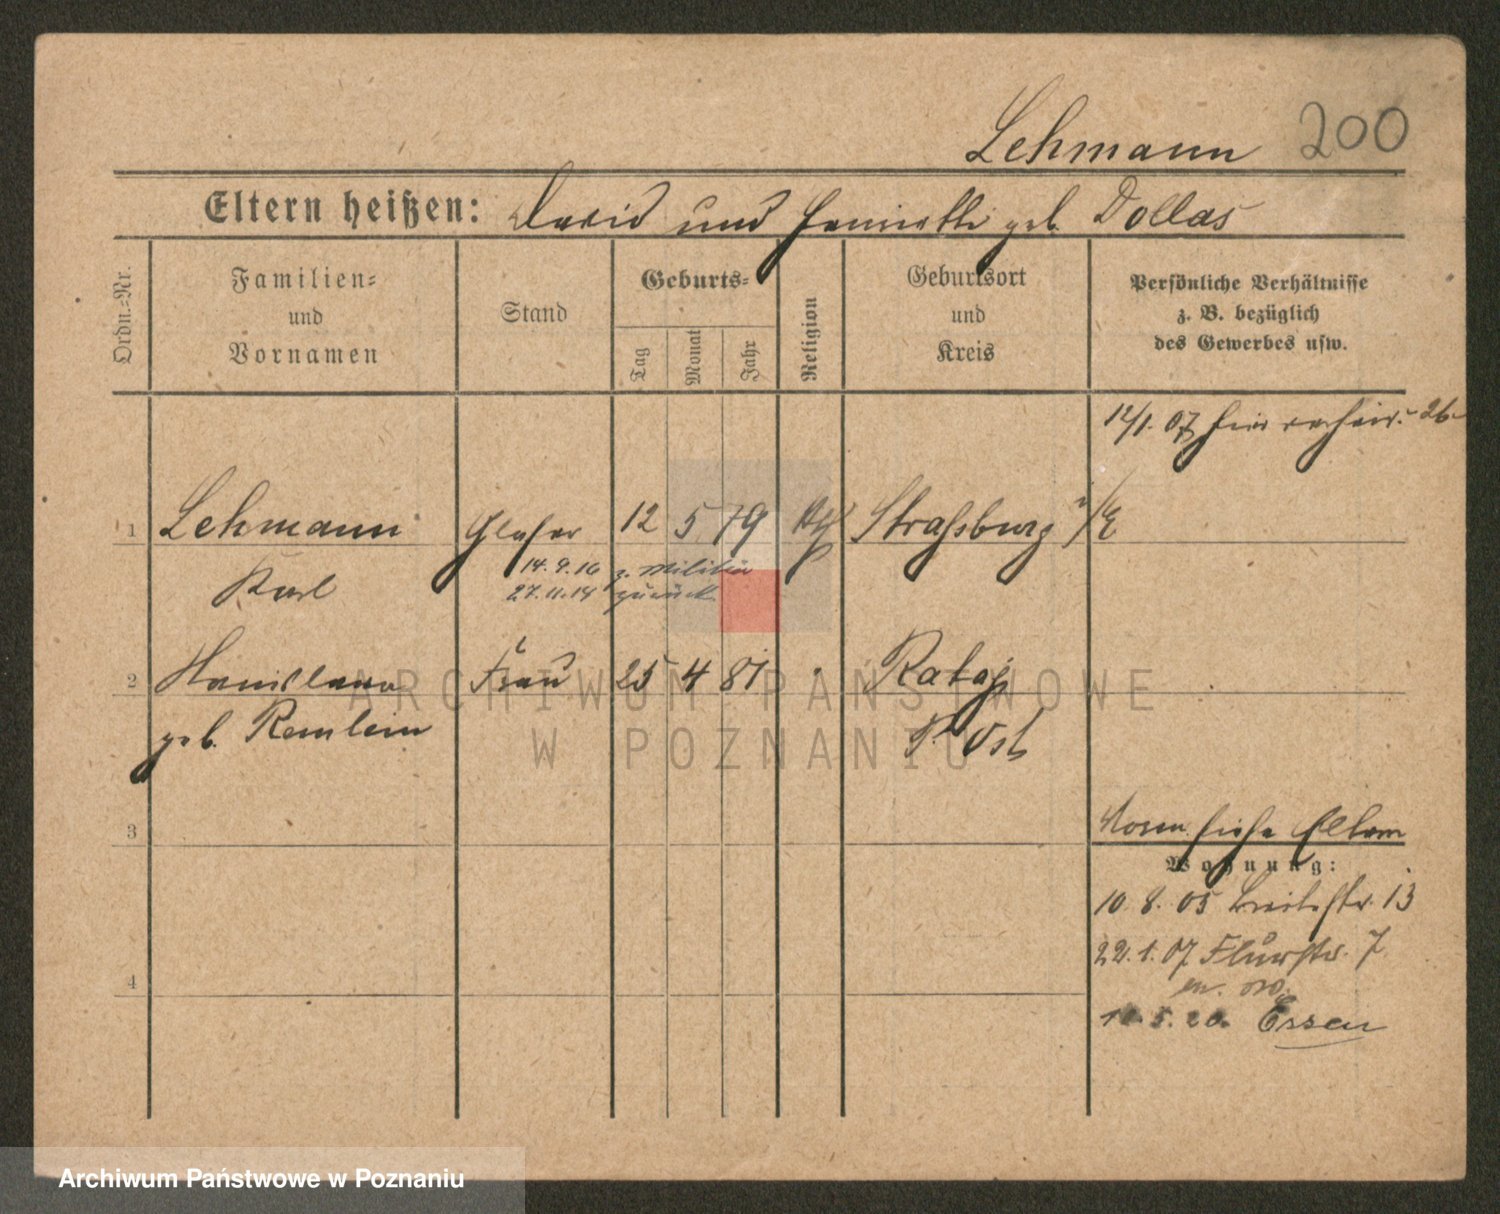 Lehmann 200
Eltern heißen: David und Henriette geb. Dollas
Ordn.-Nr.
Familien-
und
Vornamen
Stand
Geburts-
Tag
Monat
Jahr
Religion
Geburtsort
und
Kreis
Persönliche Verhältnisse
z. B. bezüglich
des Gewerbes usw.
12/1. 07 hier
1 Lehmann Glaser 12 5 79 Straßburg i/E
Karl
14. 9. 16 z. Militär
zurück
2 Stanislawa Frau 25 4 81 Rataj
geb. P. Ost
3
siehe Eltern
Wohnung:
10. 8. 05 Breitestr. 13
22. 1. 07 Flurstr. 7
4
5. 20. Essen
ARCHIWUM PAŃSTWOWE
W POZNANIU
Archiwum Państwowe w Poznaniu